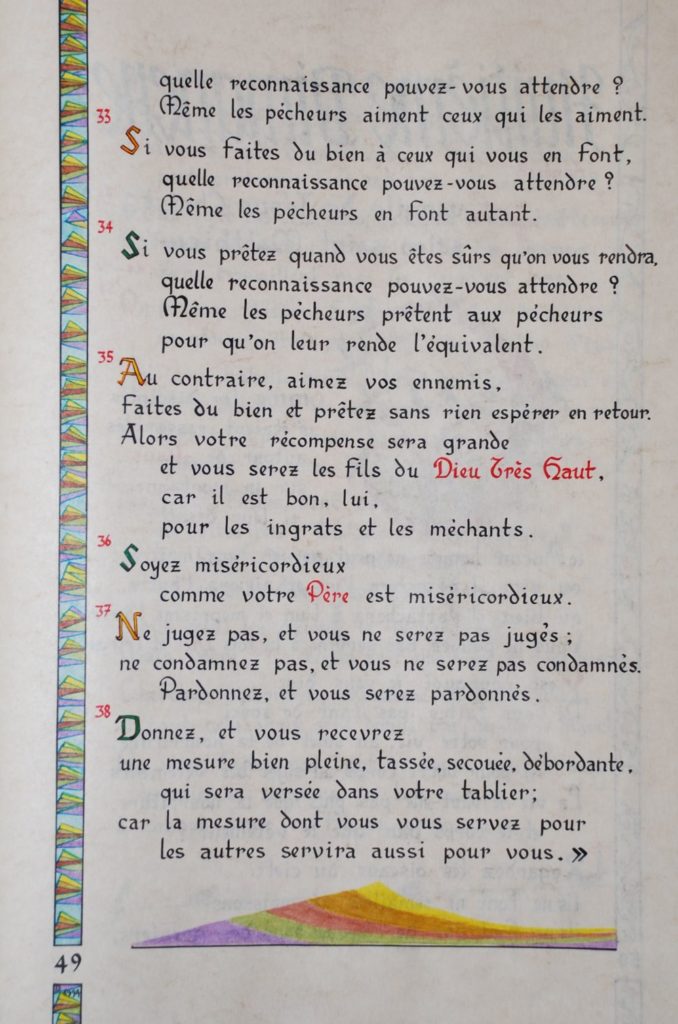 quelle reconnaissance pouvez-vous attendre ?
Même les pécheurs aiment ceux qui les aiment.
33
Si vous faites du bien à ceux qui vous en font,
quelle reconnaissance pouvez-vous attendre ?
Même les pécheurs en font autant.
34
Si vous prêtez quand vous êtes sûrs qu'on vous rendra,
quelle reconnaissance pouvez-vous attendre ?
Même les pécheurs prêtent aux pécheurs
pour qu'on leur rende l'équivalent.
35
Au contraire, aimez vos ennemis,
faites du bien et prêtez sans rien espérer en retour.
Alors votre récompense sera grande
et vous serez les fils du Dieu Très Haut,
car il est bon, lui,
pour les ingrats et les méchants.
36
Soyez miséricordieux
comme votre Père est miséricordieux.
37
Ne jugez pas, et vous ne serez pas jugés ;
ne condamnez pas, et vous ne serez pas condamnés.
Pardonnez, et vous serez pardonnés.
38
Donnez, et vous recevrez
une mesure bien pleine, tassée, secouée, débordante,
qui sera versée dans votre tablier ;
car la mesure dont vous vous servez pour
les autres servira aussi pour vous. »
49